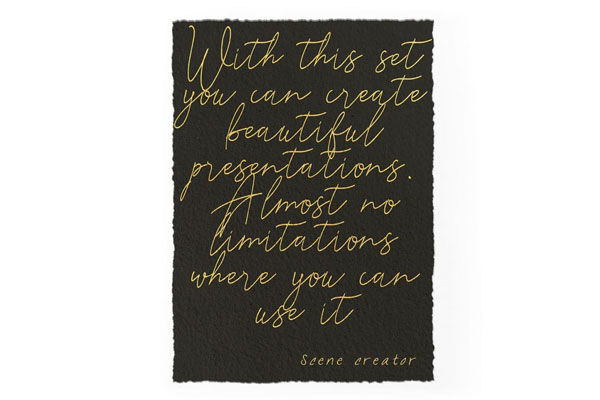 With this set
you can create
beautiful
presentations.
Almost no
limitations
where you can
use it
Scene creator